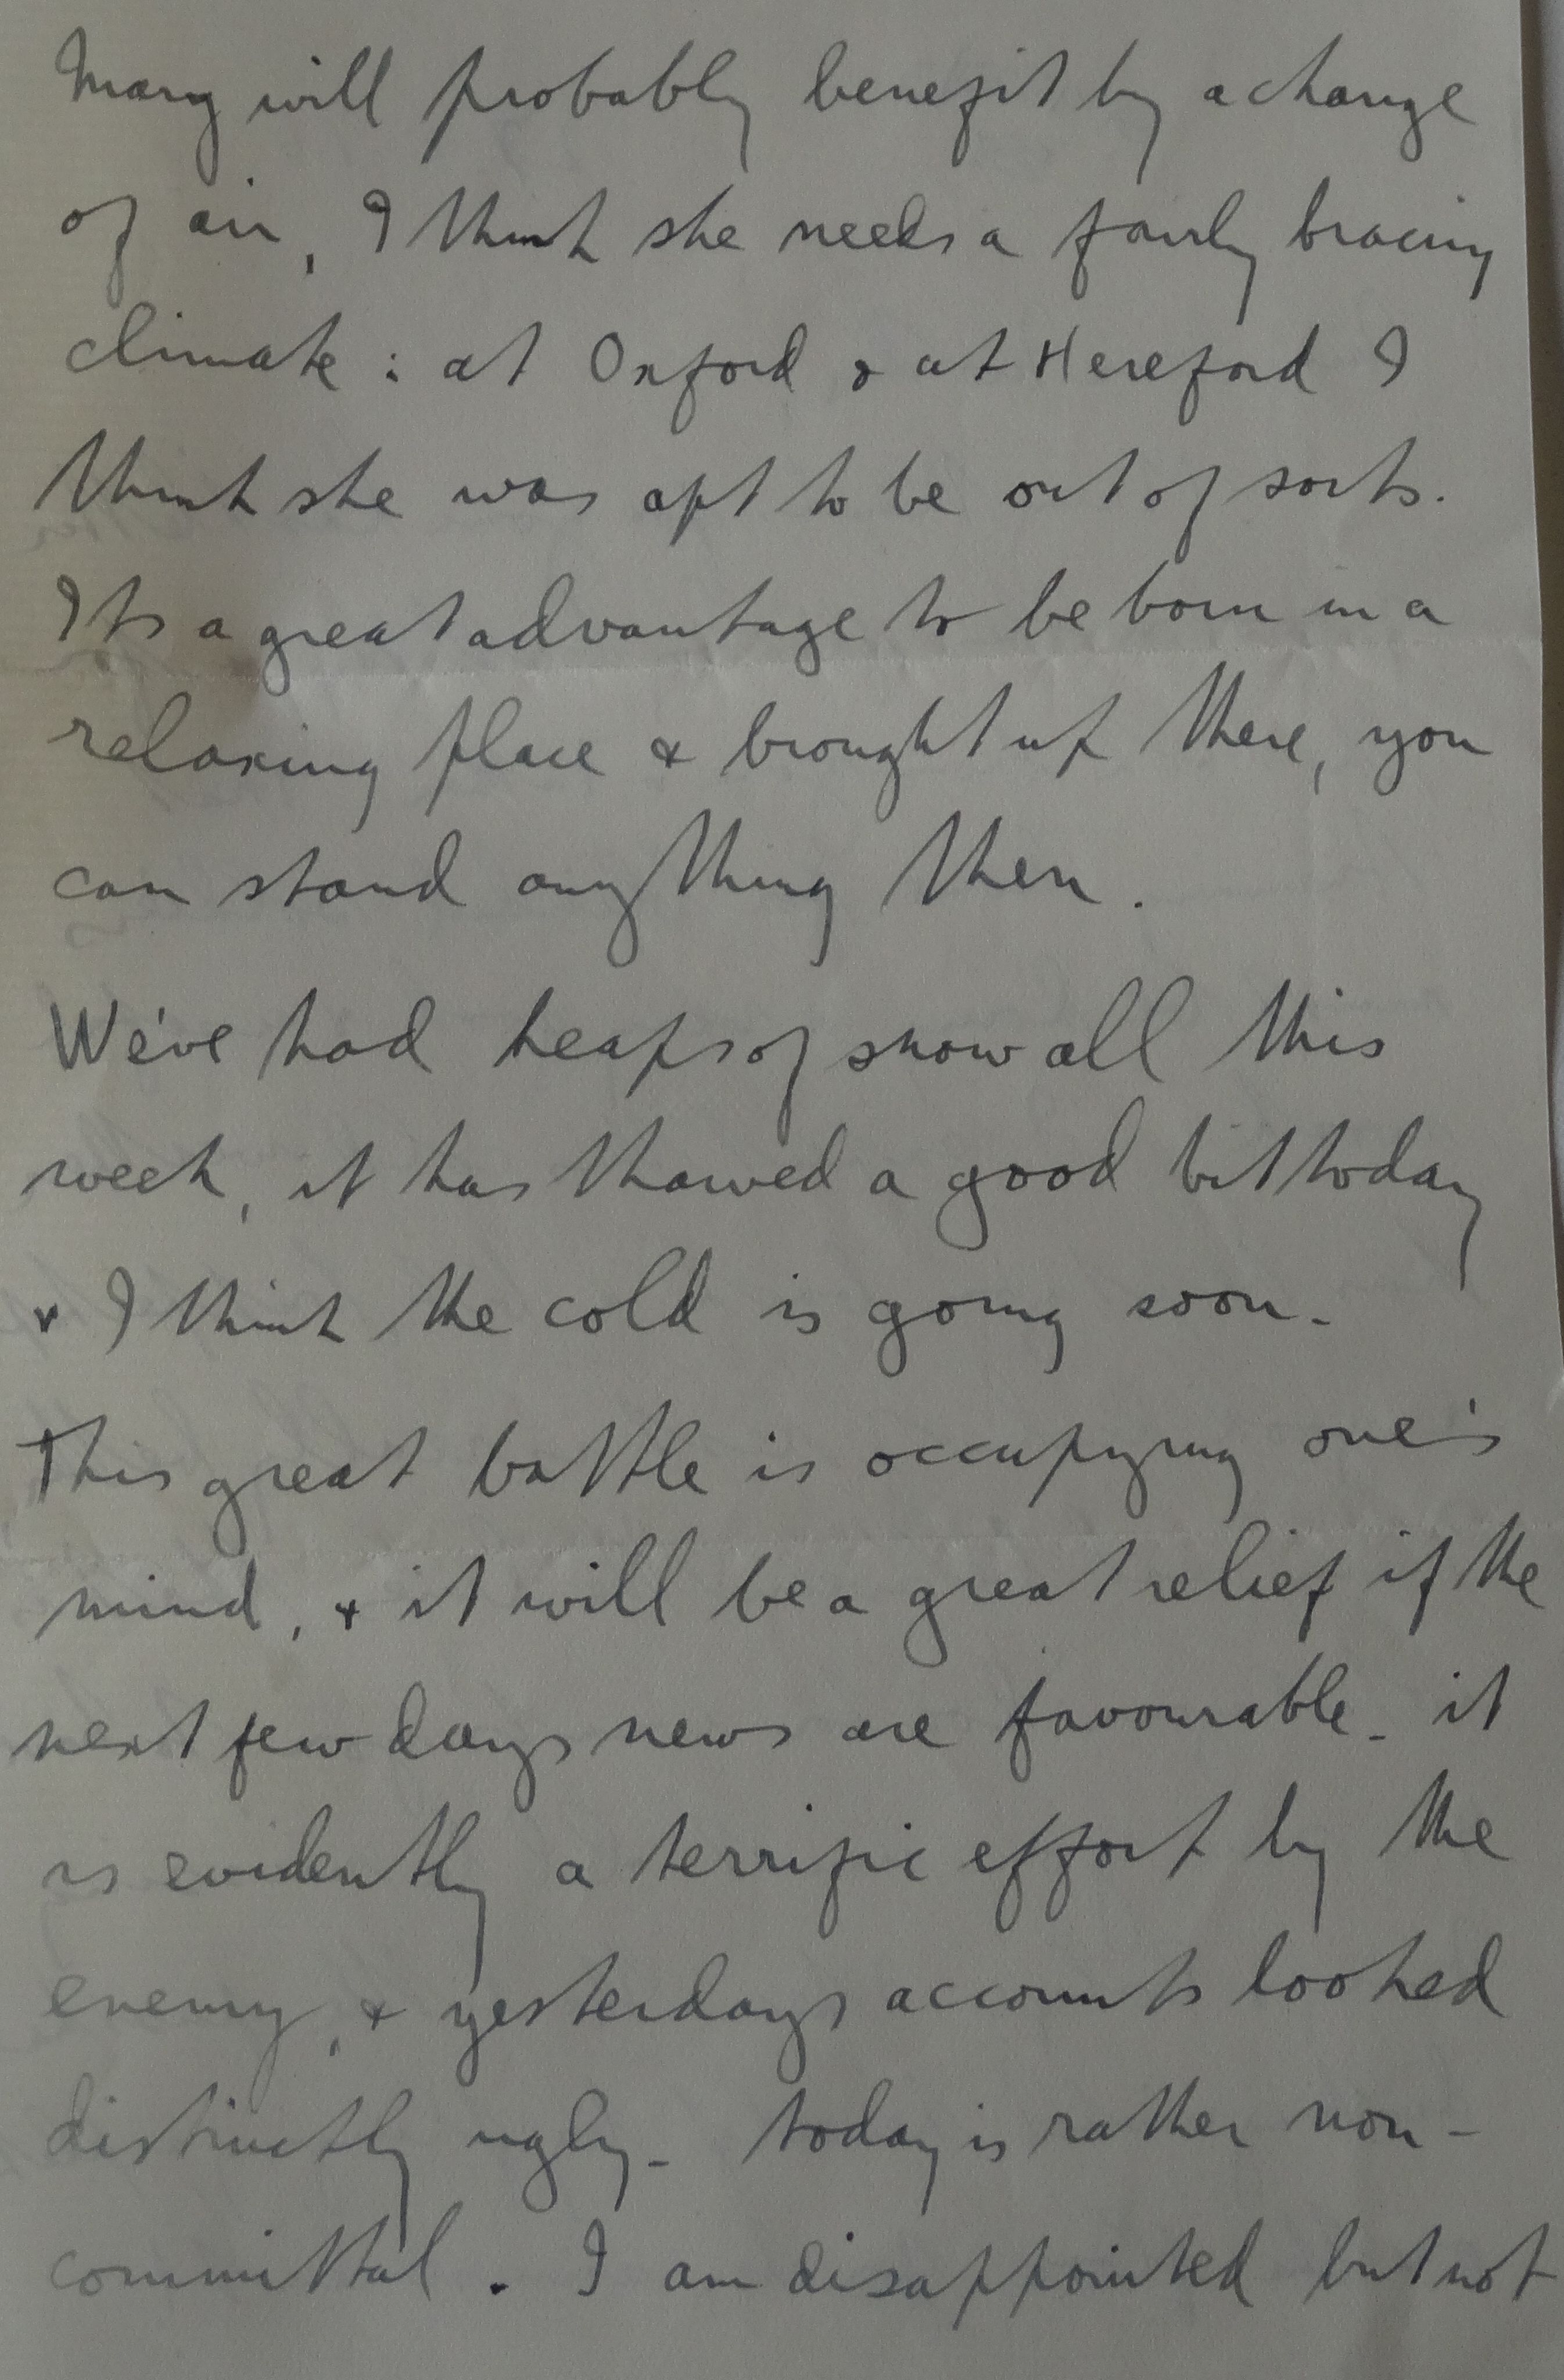 Mary will probably benefit by a change
of air, I think she needs a fairly bracing
climate : at Oxford & at Hereford I
think she was apt to be out of sorts.
Its a great advantage to be born in a
relaxing place & brought up there, you
can stand anything then.
We've had heaps of snow all this
week, it has thawed a good bit today
& I think the cold is going soon.
This great battle is occupying one's
mind, & it will be a great relief if the
next few days news are favourable - it
is evidently a terrific effort by the
enemy, & yesterdays accounts looked
distinctly ugly - today is rather non-
committal. I am disappointed but not